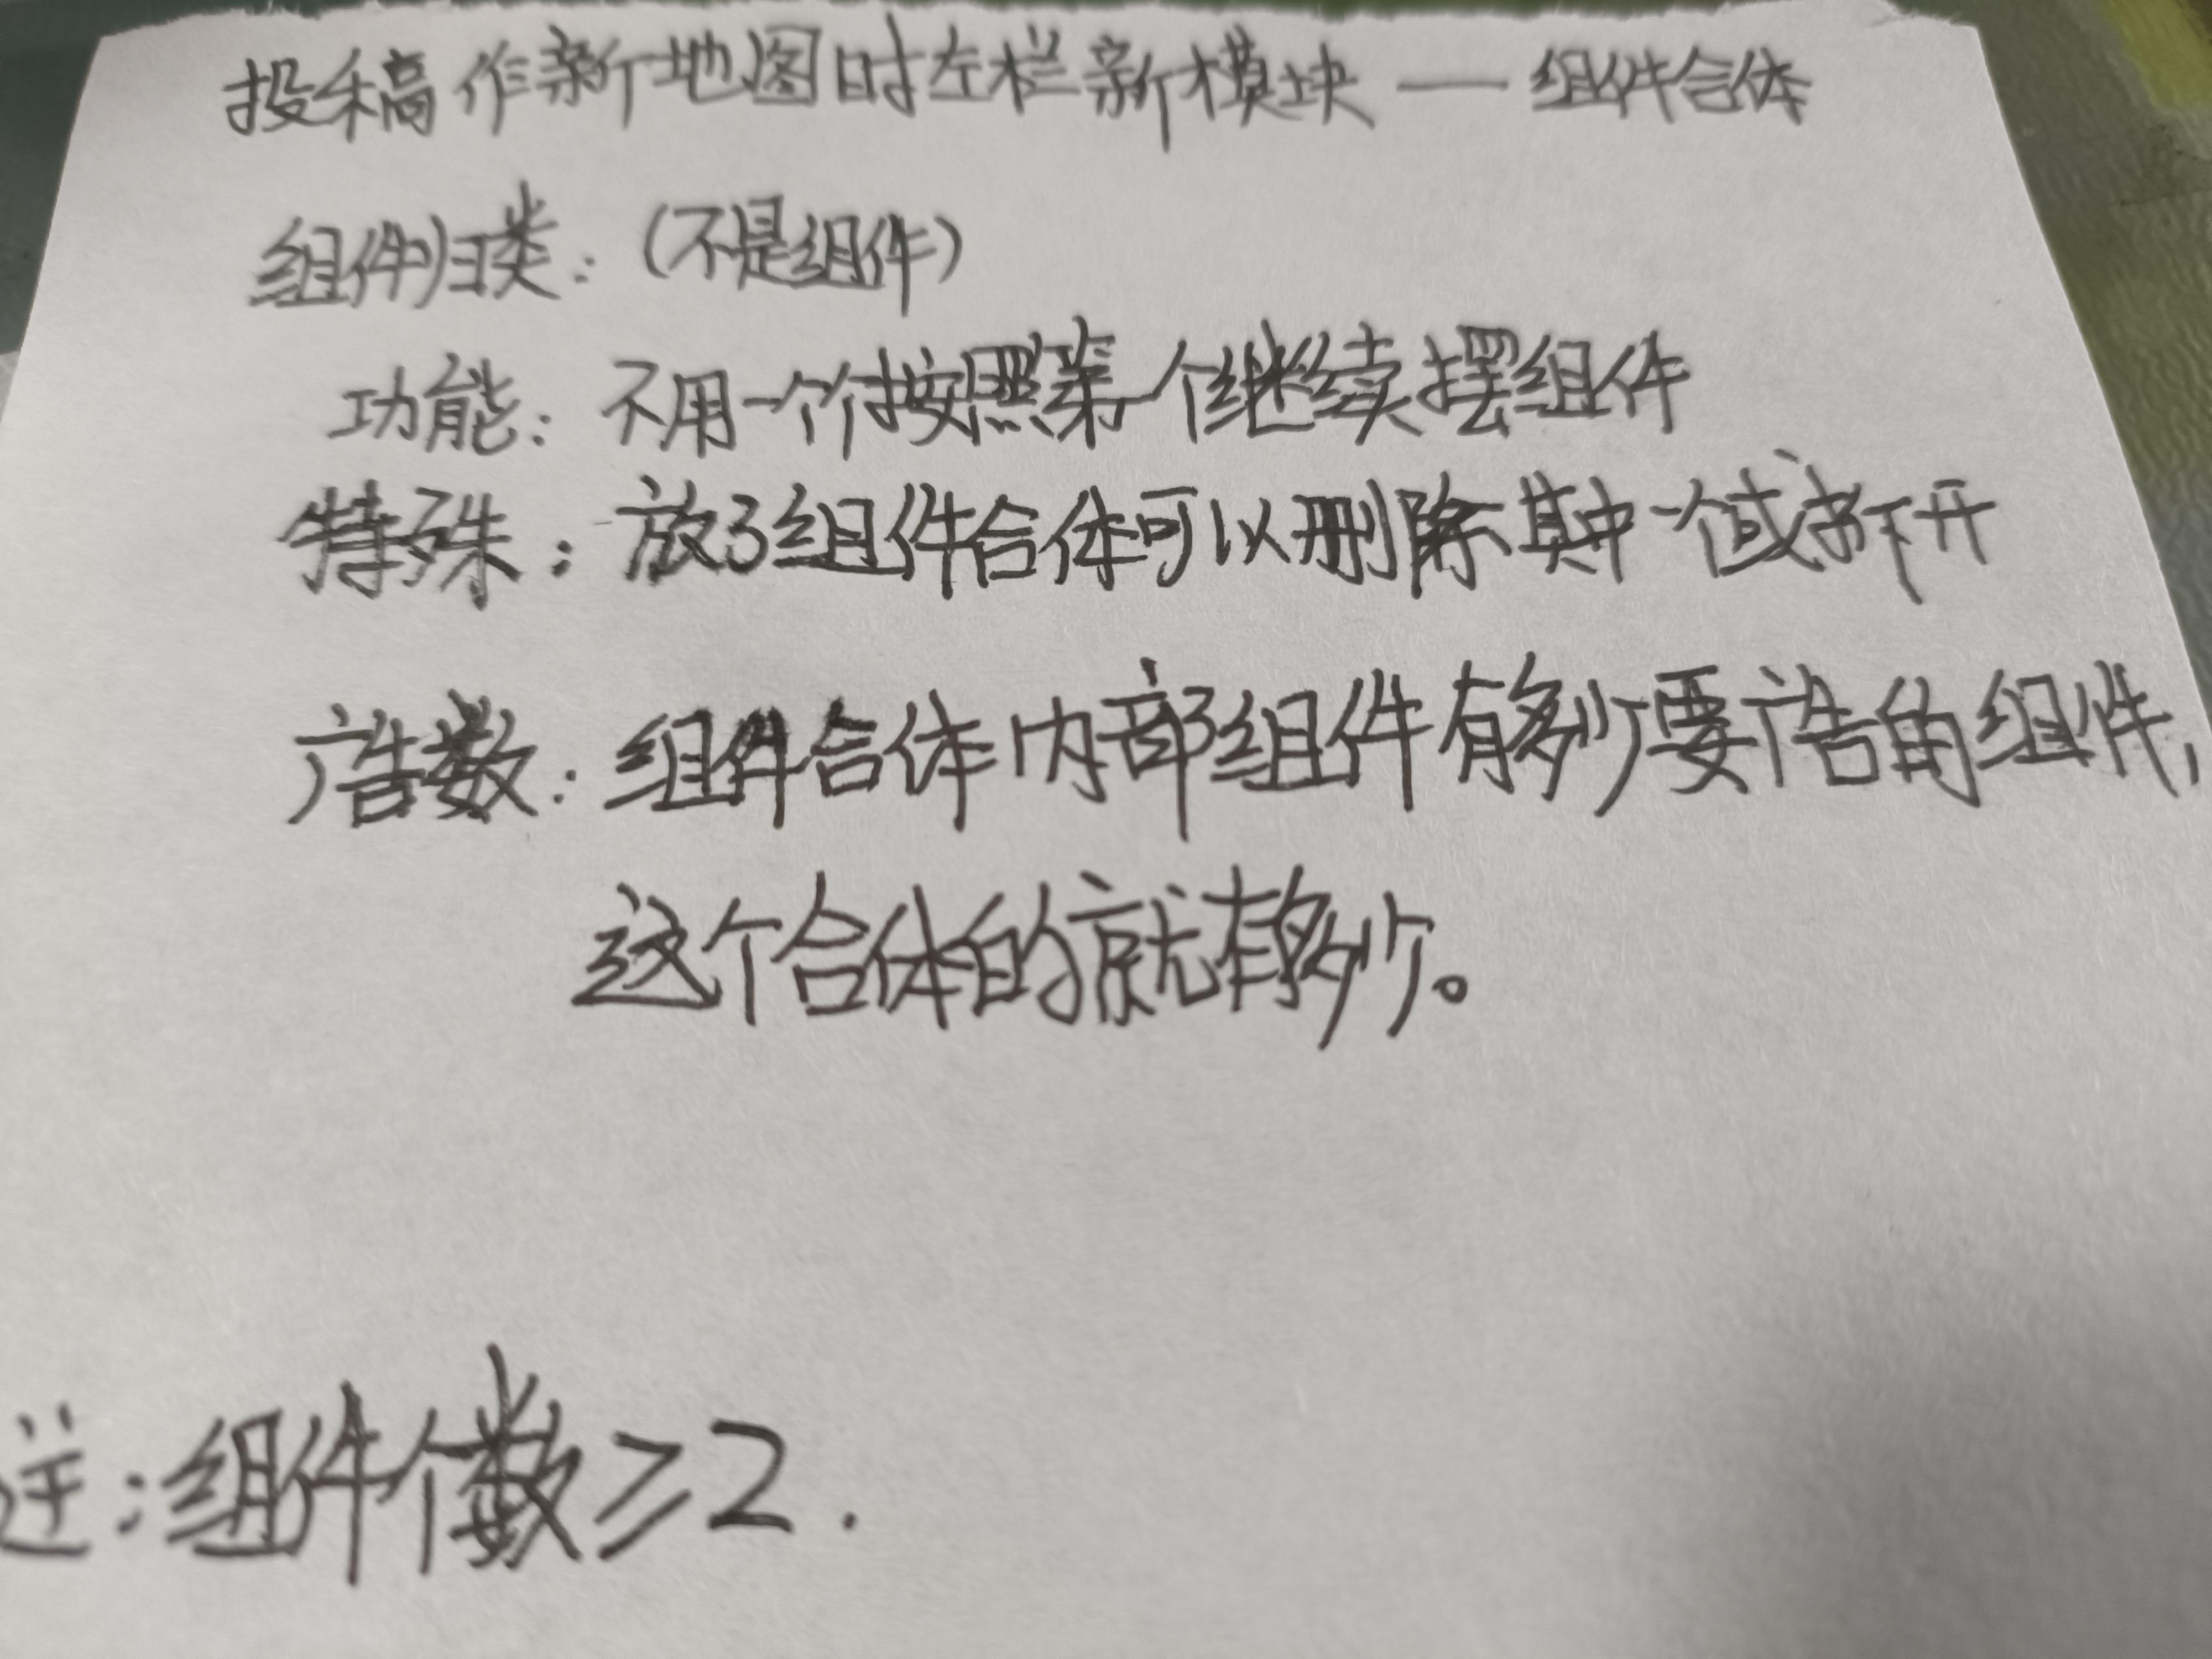 投稿作新地图时左栏新模块——组件合体
组件归类：（不是组件）
功能：不用一个个按照第一个继续摆组件
特殊：放了组件合体可以删除其中一个或拆开
广告数：组件合体内部组件有多少要广告的组件，
这个合体的就有多少。
：组件个数≥2.